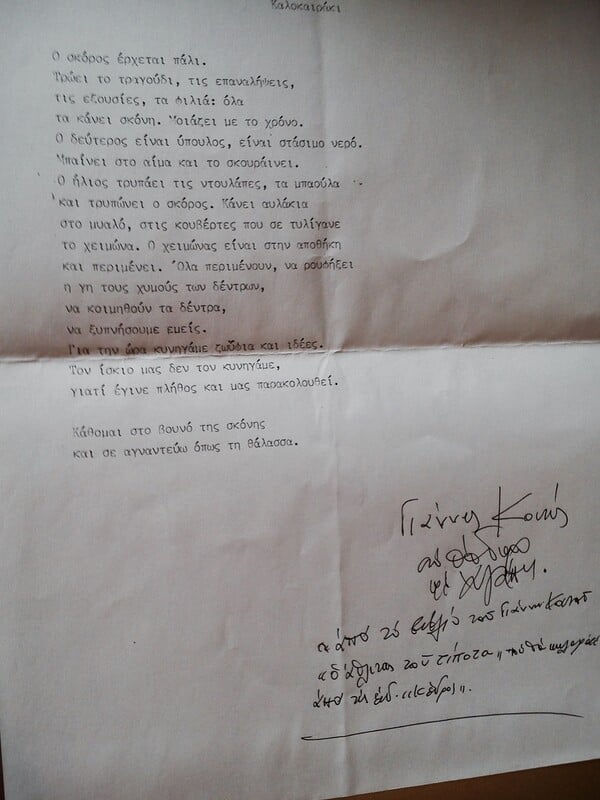 Καλοκαιράκι
Ο σκόρος έρχεται πάλι.
Τρώει το τραγούδι, τις επαναλήψεις,
τις εξουσίες, τα φιλιά: όλα
τα κάνει σκόνη. Μοιάζει με το χρόνο.
Ο δεύτερος είναι ύπουλος, είναι στάσιμο νερό.
Μπαίνει στο αίμα και το σκουραίνει.
Ο ήλιος τρυπάει τις ντουλάπες, τα μπαούλα
και τρυπώνει ο σκόρος. Κάνει αυλάκια
στο μυαλό, στις κουβέρτες που σε τυλίγανε
το χειμώνα. Ο χειμώνας είναι στην αποθήκη
και περιμένει. Όλα περιμένουν, να ρουφήξει
η γη τους χυμούς των δέντρων,
να κοιμηθούν τα δέντρα,
να ξυπνήσουμε εμείς.
Για την ώρα κυνηγάμε ζωΰφια και ιδέες.
Τον ίσκιο μας δεν τον κυνηγάμε,
γιατί έγινε πλήθος και μας παρακολουθεί.
Κάθομαι στο βουνό της σκόνης
και σε αγναντεύω όπως τη θάλασσα.
Γιάννης
με αγάπη.
από το βιβλίο του Γιάννη
του τίποτα
από τις εκδ. "Κέδρος".